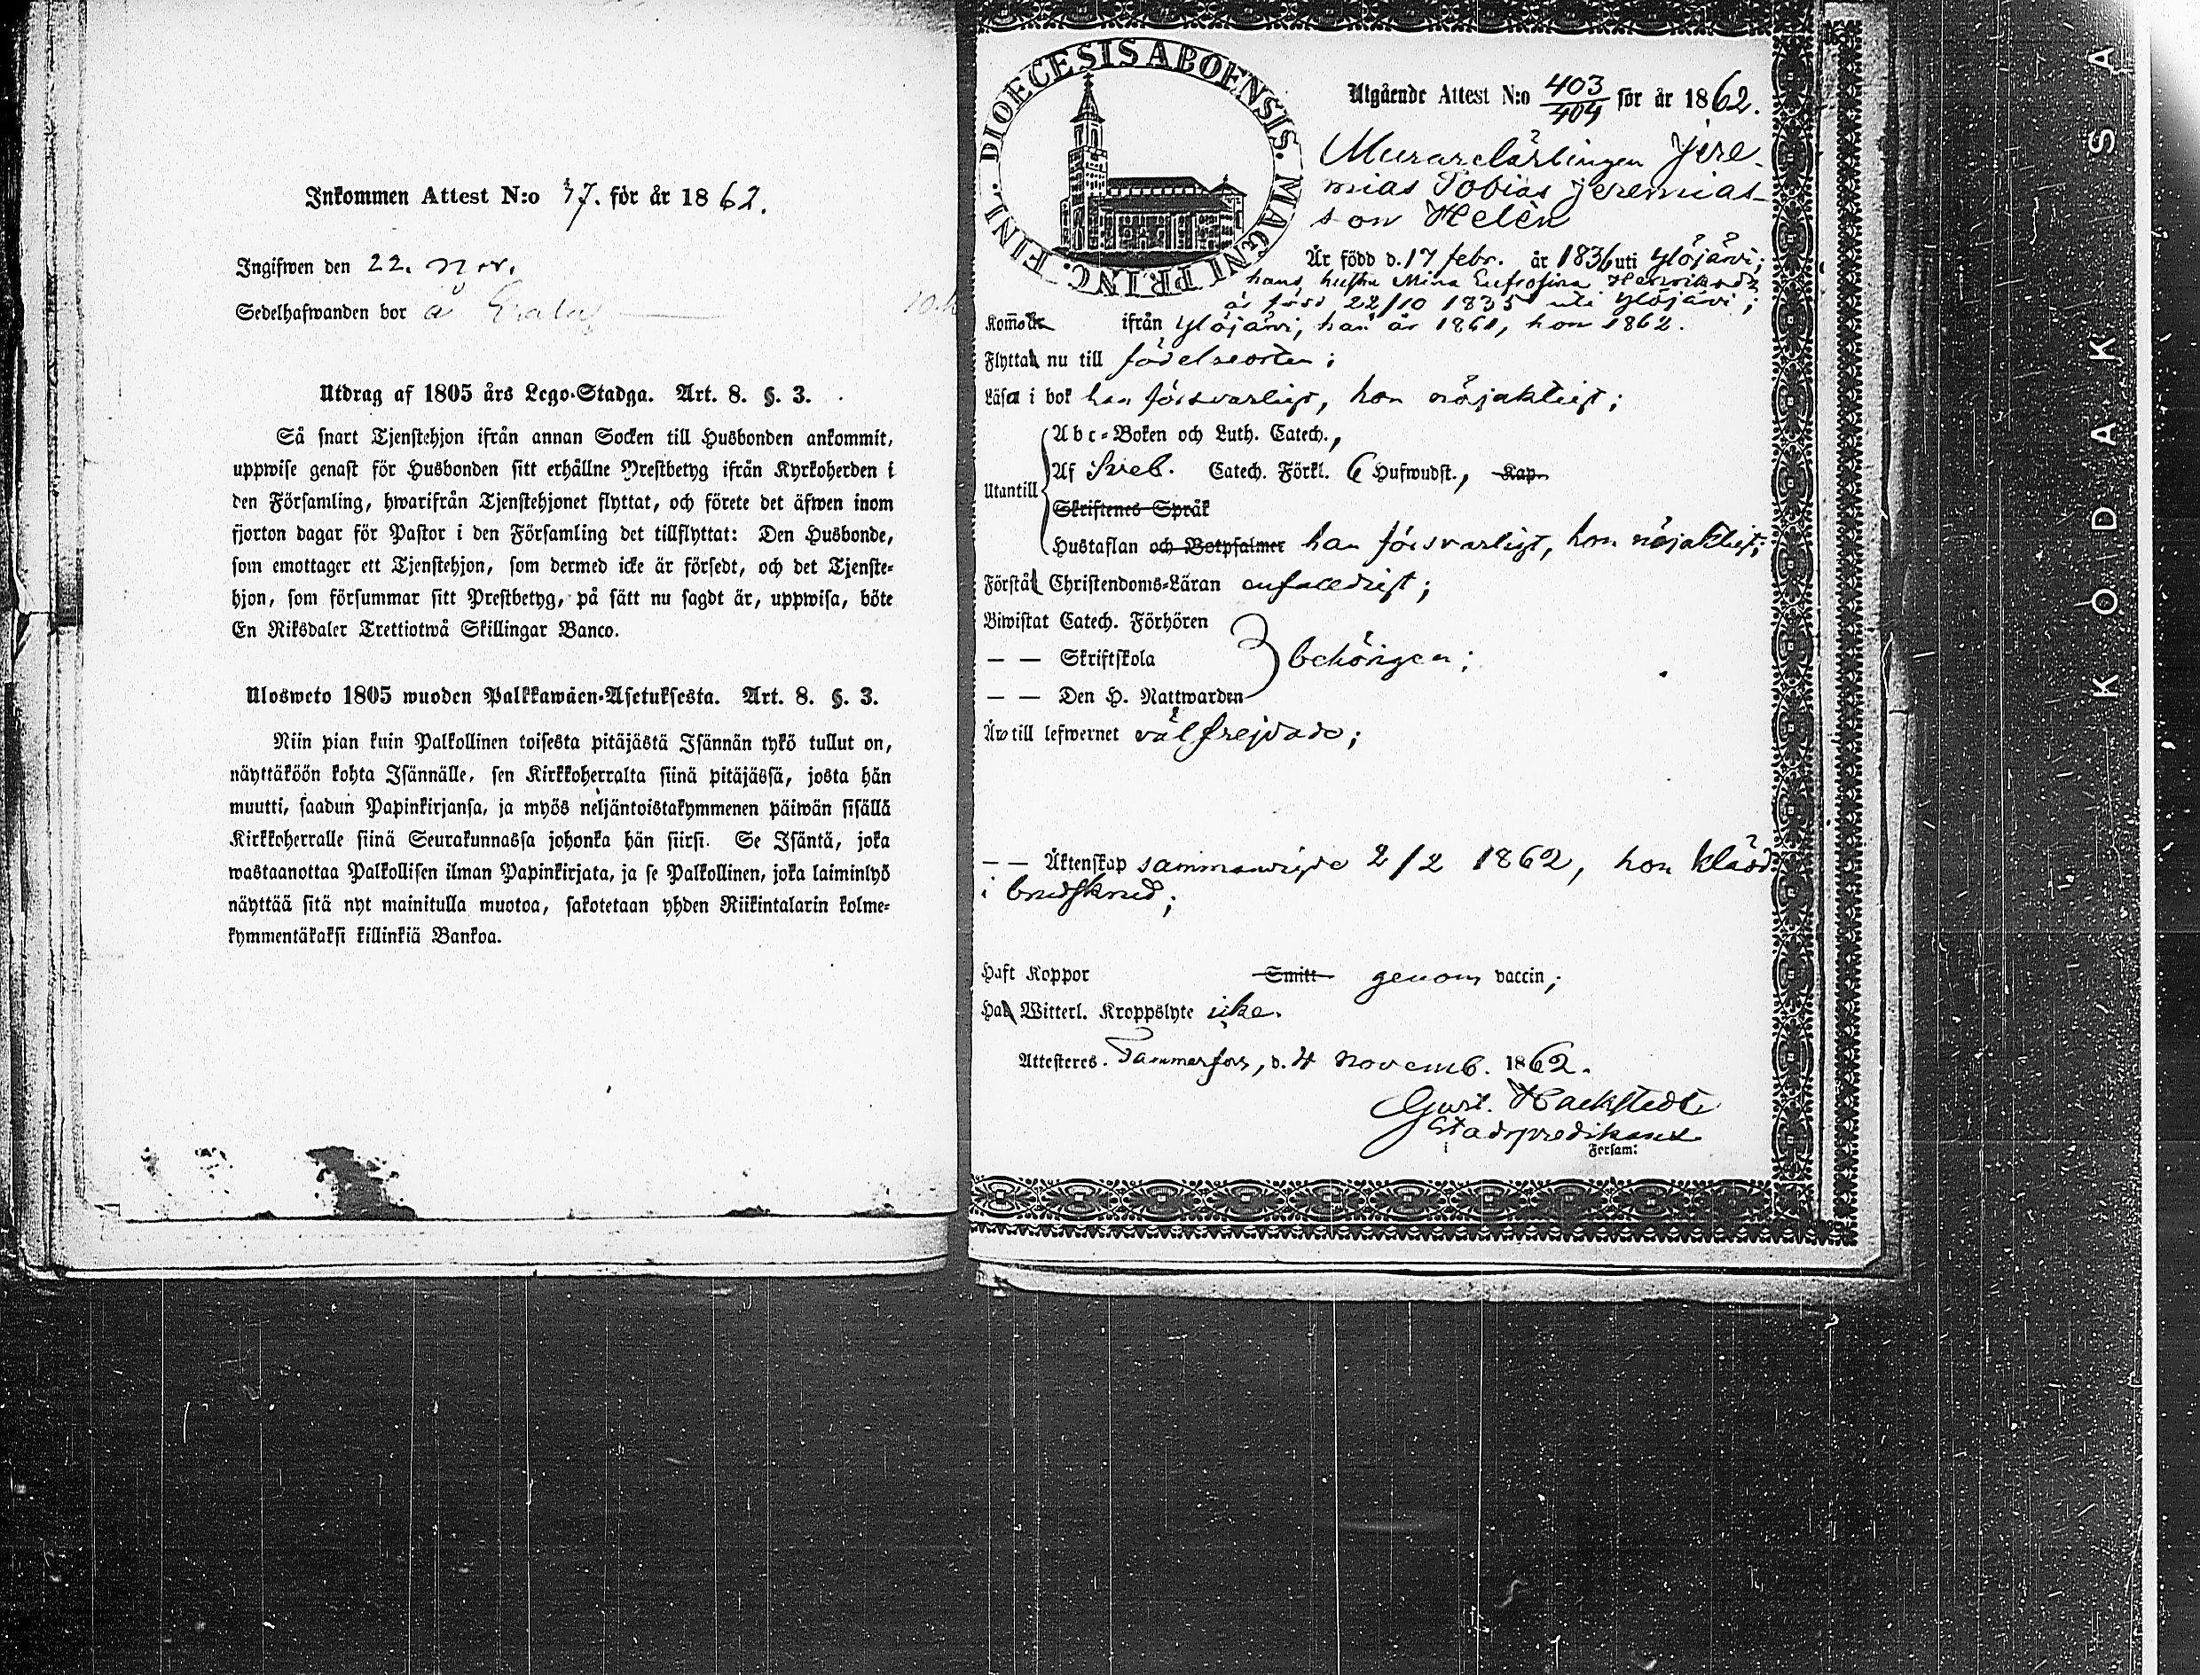 Inkommen Attest N:o 37. för år 1862.
Ingifwen den 22. Nov.
Sedelhafwanden bor å
Utdrag af 1805 års Lego-Stadga. Art. 8. §. 3.
Så snart Tjenstehjon ifrån annan Socken till Husbonden ankommit,
uppwise genast för Husbonden sitt erhållne Prestbetyg ifrån Kyrkoherden i
den Församling, hwarifrån Tjenstehjonet flyttat, och förete det äfwen inom
fjorton dagar för Pastor i den Församling det tillflyttat: Den Husbonde,
som emottager ett Tjenstehjon, som dermed icke är försedt, och det Tjenste-
hjon, som försummar sitt Prestbetyg, på sätt nu sagdt är, uppwisa, böte
En Riksdaler Trettiotwå Skillingar Banco.
Ulosweto 1805 wuoden Palkkawäen-Asetuksesta. Art. 8. §. 3.
Niin pian kuin Palkollinen toisesta pitäjästä Isännän tykö tullut on,
näyttäköön kohta Isännälle, sen Kirkkoherralta siinä pitäjässä, josta hän
muutti, saadun Papinkirjansa, ja myös neljäntoistakymmenen päiwän sisällä
Kirkkoherralle siinä Seurakunnassa johonka hän siirsi. Se Isäntä, joka
wastaanottaa Palkollisen ilman Papinkirjata, ja se Palkollinen, joka laiminlyö
näyttää sitä nyt mainitulla muotoa, sakotetaan yhden Riikintalarin kolme-
kymmentäkaksi killinkiä Bankoa.
DIOECESIS ABOENSIS. MAGNI PRINC. FINL.
Utgående Attest N:o 403/404 för år 1862.
Murarelärlingen Jere-
mias Tobias Jeremias-
son Helèn
Är född d. 17 febr. år 1836 uti Ylöjärvi;
hans hustru Mina Eufrosina
är född 22/10 1835 uti Ylöjärvi;
Kom̄o ifrån Ylöjärvi, han år 1861, hon 1862.
Flytta nu till födelseorten;
Läsa i bok han försvarligt, hon nöjaktigt;
Utantill
Abc-Boken och Luth. Catech.,
Af Sveb. Catech. Förkl. 6 Hufwudst., Kap.
Skriftenes Språk
Hustaflan och Botpsalmer han försvarligt, hon nöjaktigt;
Förstå Christendoms-Läran enfaldigt;
Biwistat Catech. Förhören
— — Skriftskola behörigen;
— — Den H. Nattwarden
Äro till lefwernet välfrejdade;
— — Äktenskap sammanvigde 2/2 1862, hon klädd
i brudskrud;
Haft Koppor Smitt genom vaccin;
Ha Witterl. Kroppslyte icke.
Attesteres. Tammerfors, d. 4 novemb. 1862.
Gust. Hackstedt
Stadspredikant
i Forsam:
KODAK SA